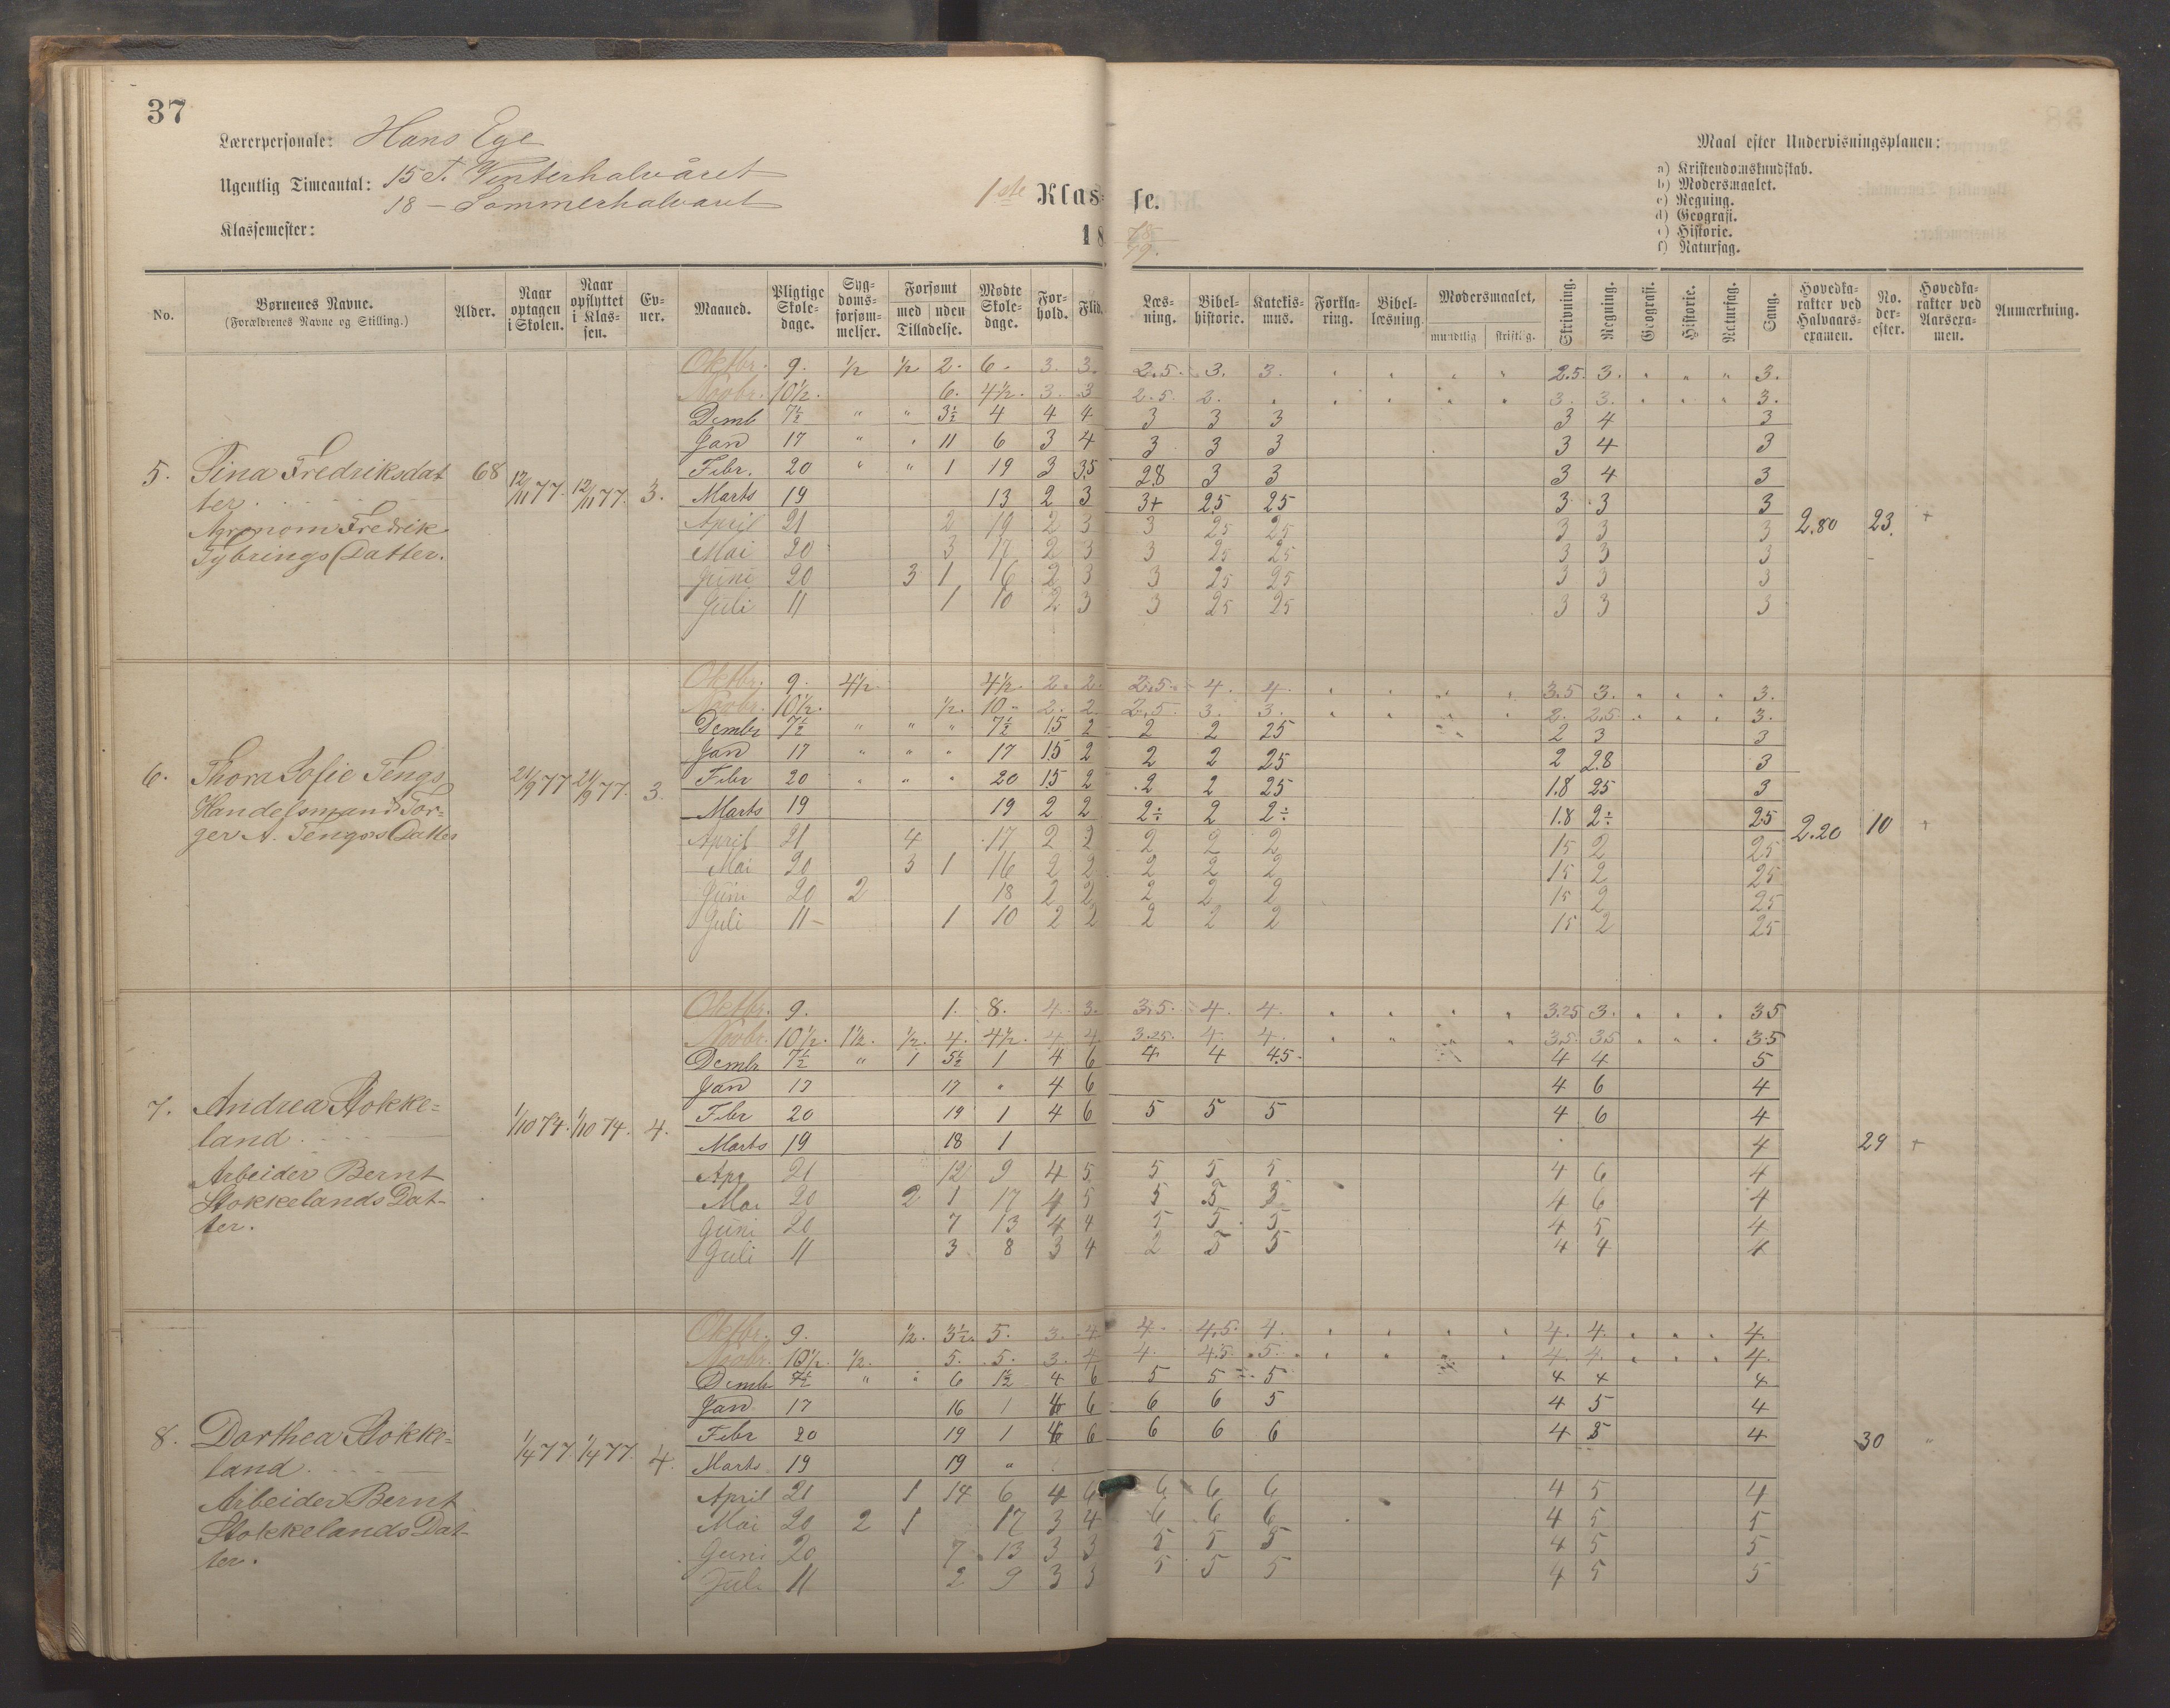 37
Lærerpersonale: Hans Ege
Ugentlig Timeantal: 15 T. Vinterhalvåret
18 – Sommerhalvaaret
Klassemester:
1ste Klas-
se.
18
78
79.
Maal efter Undervisningsplanen:
a) Kristendomskundskab.
b) Modersmaalet.
c) Regning.
d) Geografi.
e) Historie.
f) Naturfag.
No. | Børnenes Navne. (Forældrenes Navne og Stilling.) | Alder. | Naar optagen i Skolen. | Naar opflyttet i Klassen. | Evner. | Maaned. | Pligtige Skoledage. | Sygdomsforsømmelser. | Forsømt med uden Tilladelse. | Mødte Skoledage. | Forhold. | Flid. | Læsning. | Bibelhistorie. | Katekismus. | Forklaring. | Bibellæsning. | Modersmaalet, mundtlig skriftlig. | Skrivning. | Regning. | Geografi. | Historie. | Naturfag. | Sang. | Hovedkarakter ved Halvaarsexamen. | No. derefter. | Hovedkarakter ved Aarsexamen. | Anmærkning.
5. Tina Fredriksdat
ter.
Agronom Fredrik
Tybrings Datter.
68 12/11 77. 12/11 77. 3.
Oktbr. 9. 1/2 1/2 2. 6. 3. 3. 2.5. 3. 3. 2.5. 3. 3.
Novbr. 10 1/2. 6. 4 1/2. 3. 3 2.5. 2. 3. 3. 3.
Demb 7 1/2 " " 3 1/2 4 4 4 3 3 3 3 4 3
Jan 17 " " 11 6 3 4 3 3 3 3 4 3
Febr. 20 " " 1 19 3 3.5 2.8 3 3 3 4 3
Marts 19 13 2 3 3+ 2.5 25 3 3 3
April 21 2 19 2 3 3 25 25 3 3 3
Mai 20 3 17 2 3 3 25 25 3 3 3
Juni 20 3 1 16 2 3 3 25 25 3 3 3
Juli 11 1 10 2 3 3 25 25 3 3 3
2.80 23. +
6. Thora Sofie Tengs
Handelsmand Tor-
ger A. Tengs Datter
21/9 77 21/9 77. 3.
Oktbr. 9. 4 1/2. 4 1/2. 2. 2. 2.5. 4. 4. 3.5 3. 3.
Novbr. 10 1/2. 1/2. 10 2. 2. 2.5. 3. 3. 2. 2.5. 3.
Dembr 7 1/2 " " " 7 1/2 15 2 2 2 25 2 3 3
Jan 17 " " " 17 15 2 2 2 25 2 28 3
Febr 20 " " " 20 15 2 2 2 25 1.8 25 3
Marts 19 19 2 2 2÷ 2 2÷ 1.8 2÷ 25
April 21 4 17 2 2 2 2 2 15 2 25
Mai 20 3 1 16 2 2 2 2 2 15 2 25
Juni 20 2 18 2 2 2 2 2 15 2 25
Juli 11 1 10 2 2 2 2 2 15 2 25
2.20 10 +
7. Andrea Stokke-
land
Arbeider Bernt
Stokkelands Dat-
ter.
1/10 74. 1/10 74. 4.
Oktbr. 9. 1. 8. 4. 3. 3.5. 4. 4. 3.25 3. 35
Novbr. 10 1/2. 1 1/2. 1/2. 4. 4 1/2. 4. 4. 3.25. 4. 4. 3.5. 3.5 3.5
Dembr 7 1/2 " 1 5 1/2 1 4 6 4 4 4.5 4 4 5
Jan 17 17 " 4 6 4 6 4
Febr 20 19 1 4 6 5 5 5 4 6 4
Marts 19 18 1 4
Apr 21 12 9 4 5 5 5 5 4 6 4
Mai 20 2 1 17 4 5 5 5 5 4 6 4
Juni 20 7 13 4 4 5 5 5 4 5 4
Juli 11 3 8 3 4 2 5 5 4 4 4
29 +
8. Dorthea Stokke-
land
Arbeider Bernt
Stokkelands Dat-
ter.
1/4 77 1/4 77. 4.
Oktbr. 9. 1/2. 3 1/2. 5. 3. 4. 4. 4.5. 4. 4. 4. 4.
Novbr. 10 1/2. 1/2. 5. 5. 3. 4 4. 4.5. 5. 4. 4. 4.
Demb 7 1/2 " " 6 1 1/2 4 6 5 5 5 4 4 4
Jan 17 16 1 4 6 6 6 5 4 5 4
Febr 20 19 1 4 6 6 6 6 4 5 4
Marts 19 19 "
April 21 1 14 6 4 6 6 6 6 4 5 4
Mai 20 2 1 17 3 4 6 6 6 4 5 5
Juni 20 7 13 3 3 5 5 5 4 5 5
Juli 11 2 9 3 3 5 5 5 4 5 5
30 "